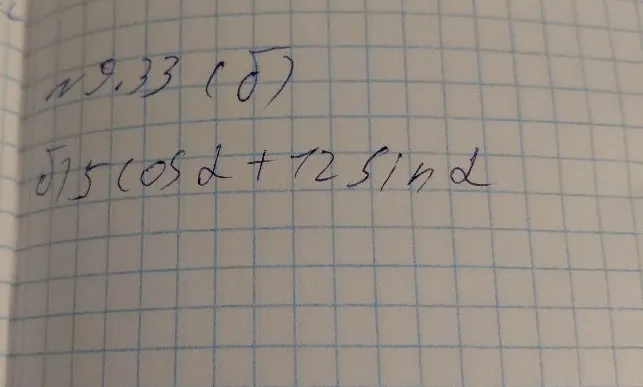 №9.33 (б)
б) 5 cos α + 12 sin α